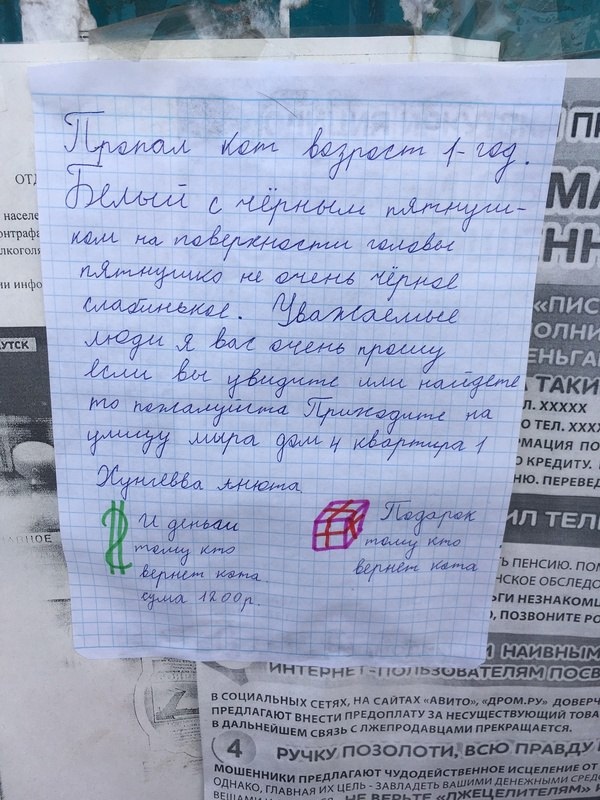 Пропал кот возрост 1-год.
Белый с чёрным пятнуш-
ком на поверхности головы
пятнушко не очень чёрное
слабинькое. Уважаемые
люди я вас очень прошу
если вы увидите или найдете
то пожалуйста Приходите на
улицу мира дом 4 квартира 1
Хунгевва Анюта
И деньги
тому кто
вернет кота.
сума 1200р.
Подарок
тому кто
вернёт кота
ОТД
населе
УТСК
«ПИС
ТАКИ
Л. ХХХХХ
ТЕЛ. ХХХ
МАЦИЯ ПО
КРЕДИТУ.
НЮ. ПЕРЕВЕД
ИЛ ТЕЛ
Ь ПЕНСИЮ. ПОМ
НСКОЕ ОБСЛЕДО
ГИ НЕЗНАКОМЦ
, ПОЗВОНИТЕ РО
И НАИВНЫМ
ИНТЕРНЕТ-ПОЛЬЗОВАТЕЛЯМ ПОСВ
В СОЦИАЛЬНЫХ СЕТЯХ, НА САЙТАХ «АВИТО», «ДРОМ.РУ» ДОВЕРЧ
ПРЕДЛАГАЮТ ВНЕСТИ ПРЕДОПЛАТУ ЗА НЕСУЩЕСТВУЮЩИЙ ТОВА
В ДАЛЬНЕЙШЕМ СВЯЗЬ С ЛЖЕПРОДАВЦАМИ ПРЕКРАЩАЕТСЯ.
4 РУЧКУ ПОЗОЛОТИ, ВСЮ ПРАВДУ
МОШЕННИКИ ПРЕДЛАГАЮТ ЧУДОДЕЙСТВЕННОЕ ИСЦЕЛЕНИЕ ОТ
ОДНАКО, ГЛАВНАЯ ИХ ЦЕЛЬ - ЗАВЛАДЕТЬ ВАШИМИ ДЕНЕЖНЫМИ СРЕД
НЕ ВЕРЬТЕ «ЛЖЕЦЕЛИТЕЛЯМ»